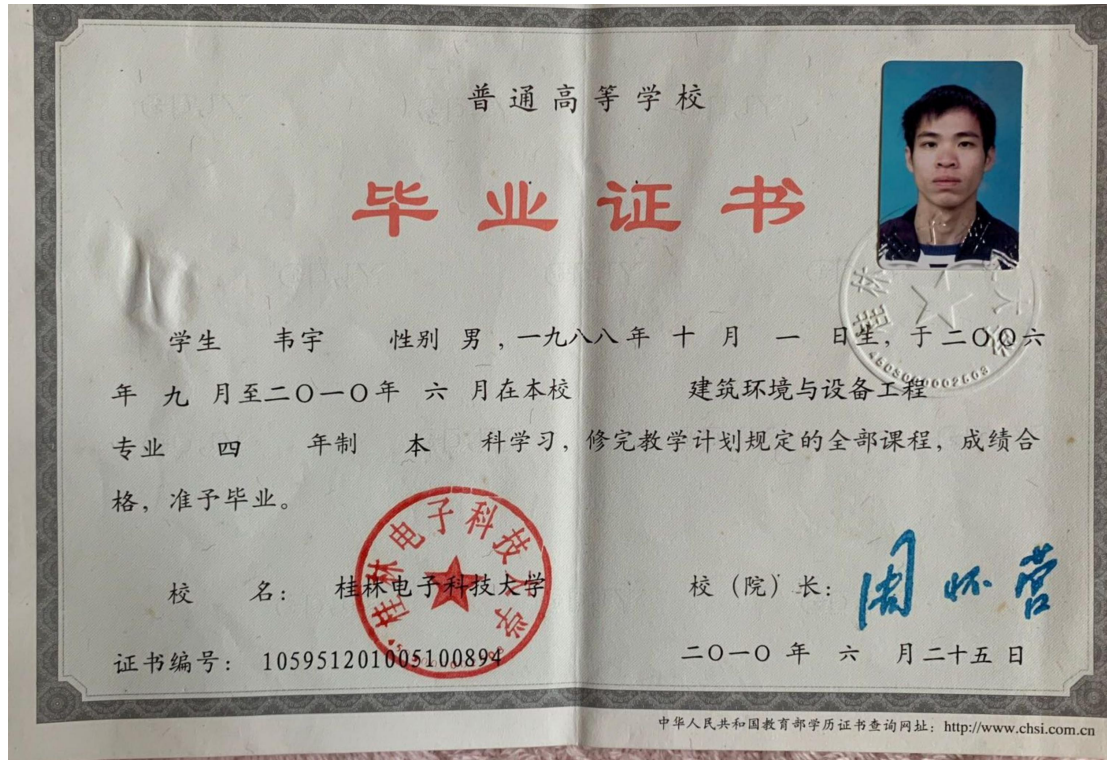 普通高等学校
毕业证书
学生 韦宇 性别 男 ,一九八八年 十 月 一 日生, 于二〇〇六
年 九 月至二〇一〇年 六 月在本校 建筑环境与设备工程
专业 四 年制 本 科学习, 修完教学计划规定的全部课程, 成绩合
格, 准予毕业。
桂林电子科技大学
校 名: 桂林电子科技大学 校 (院) 长: 周怀营
证书编号: 105951201005100894 二〇一〇 年 六 月二十五日
中华人民共和国教育部学历证书查询网址: http://www.chsi.com.cn